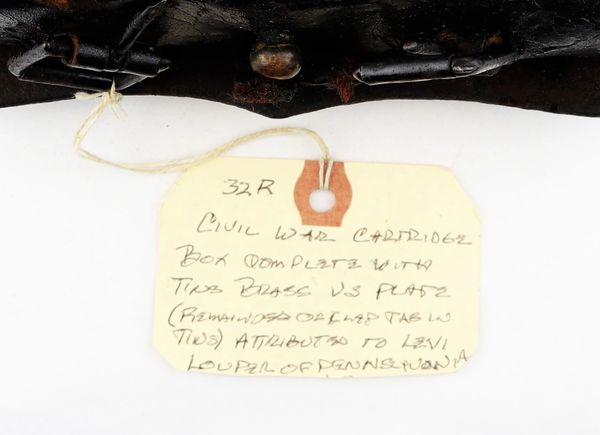 32R
CIVIL WAR CARTRIDGE
BOX COMPLETE WITH
TINS BRASS US PLATE
(REMAINDER OF FLAP TAB IN
TINS) ATTRIBUTED TO LEVI
LOUPER OF PENNSLYVANIA